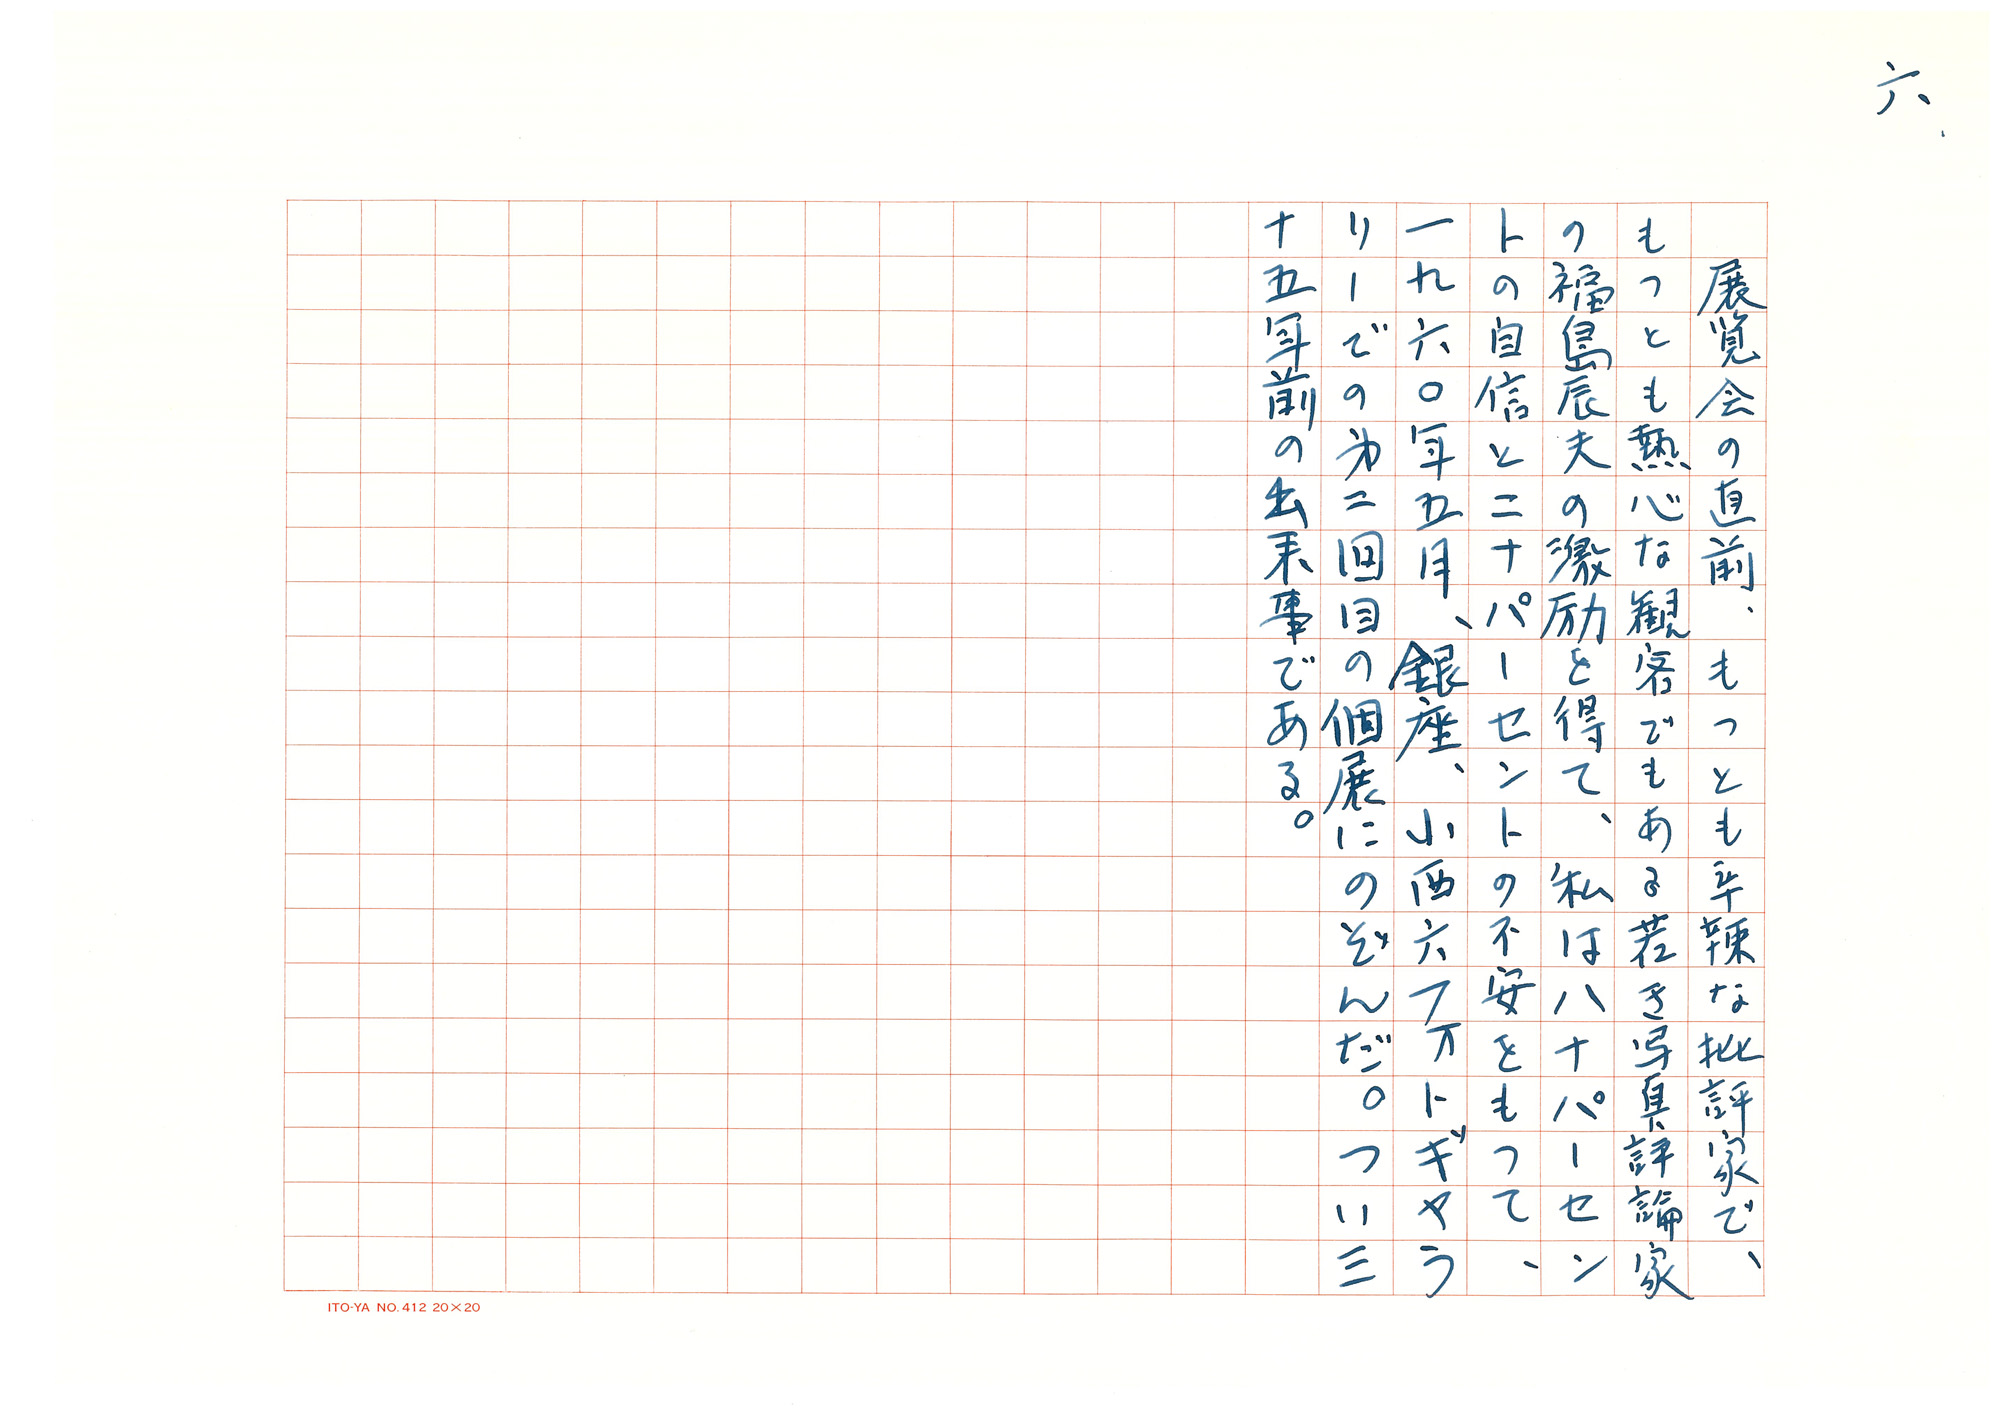 六、
展覧会の直前、もっとも辛辣な批評家で、
もっとも熱心な観客でもある若き写真評論家
の福島辰夫の激励を得て、私は八十パーセン
トの自信と二十パーセントの不安をもって、
一九六〇年五月、銀座、小西六フォトギャラ
リーでの第二回目の個展にのぞんだ。つい三
十五年前の出来事である。
ITO-YA NO.412 20×20